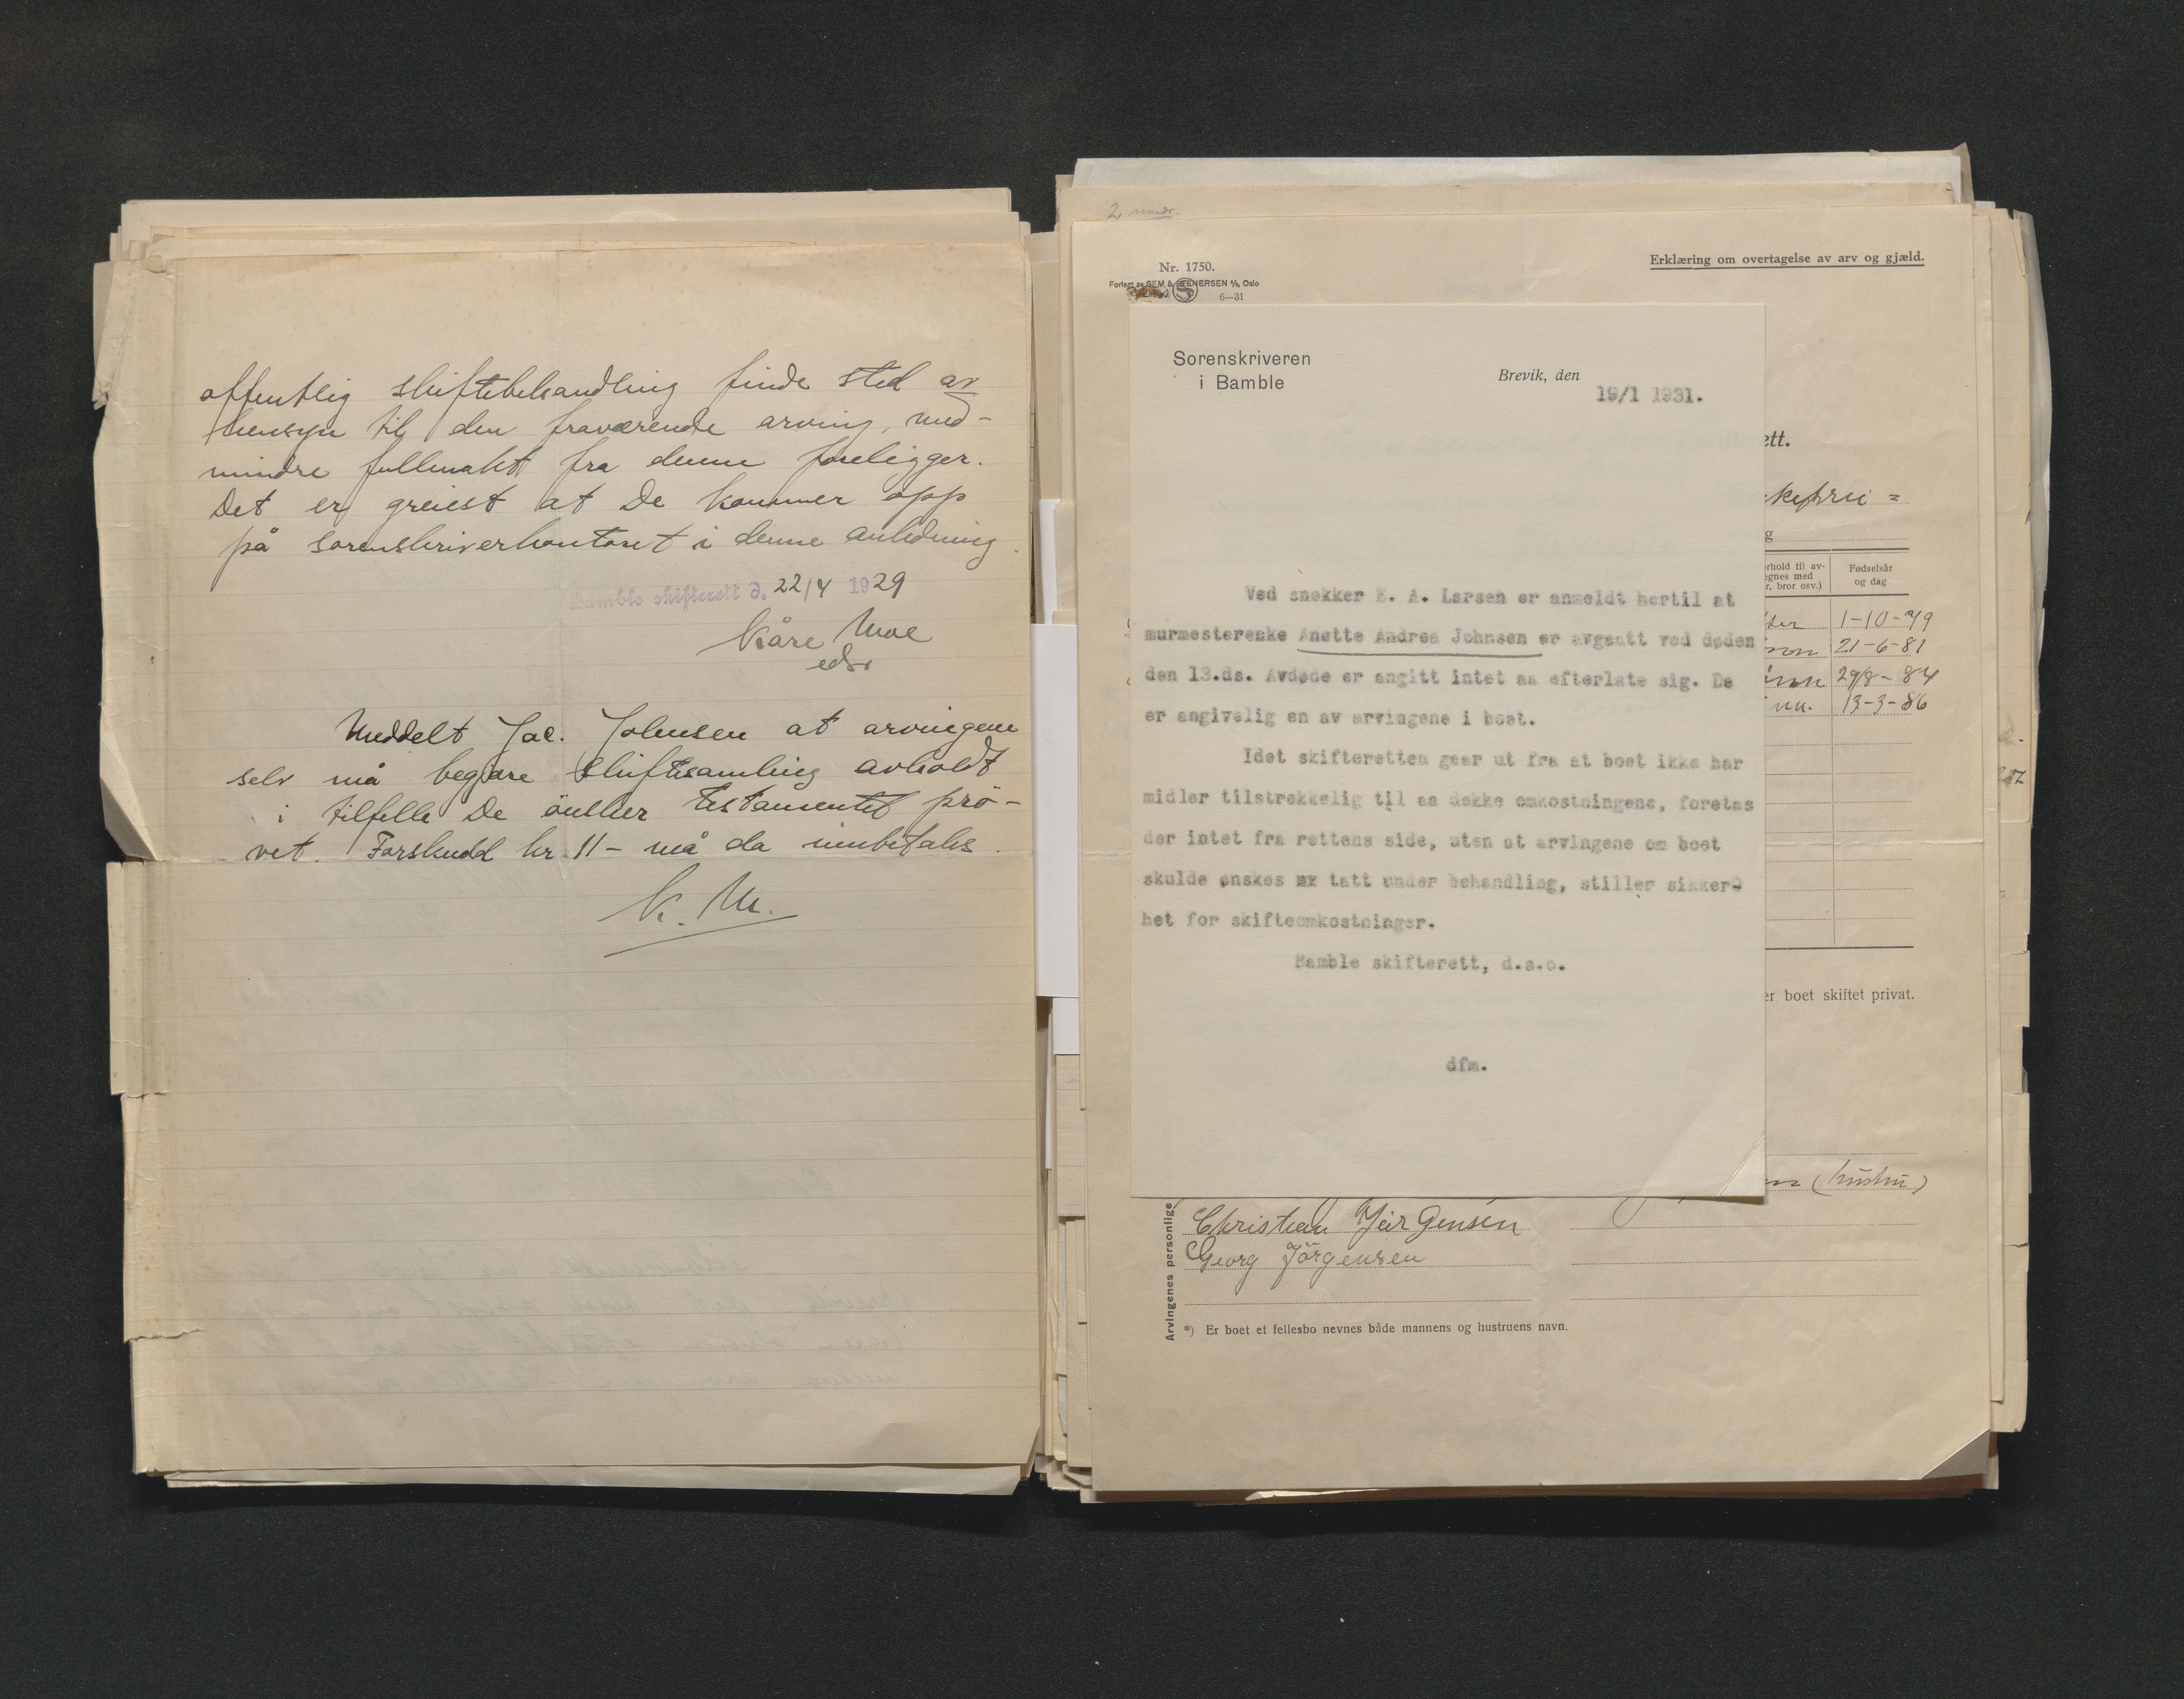 offentlig skiftebehandling finde sted av
hensyn til den fraværende arving, med-
mindre fullmakt fra denne foreligger.
Det er greiest at De kommer opp
på sorenskriverkontoret i denne anledning.
Bamble skifterett d. 22/4 1929
Kåre Moe
edsv
Meddelt Jac. Johnsen at arvingene
selv må begjære skiftesamling avholdt
i tilfelle De önsker testamentet prö-
vet. Forskudd kr. 11- må da innbetales.
K. M.
2 mndr.
Nr. 1750.
Erklæring om overtagelse av arv og gjæld.
Forlagt av SEM & STENERSEN A/S, Oslo
6—31
Sorenskriveren
i Bamble
Brevik, den
19/1 1931.
Ved snekker E. A. Larsen er anmeldt hertil at
murmesterenke Anette Andrea Johnsen er avgaatt ved døden
den 13.ds. Avdøde er angitt intet aa efterlate sig. De
er angivelig en av arvingene i boet.
Idet skifteretten gaar ut fra at boet ikke har
midler tilstrekkelig til aa dekke omkostningene, foretas
der intet fra rettens side, uten at arvingene om boet
skulde ønskes tatt under behandling, stiller sikker-
het for skifteomkostninger.
Bamble skifterett, d.s.o.
dfm.
ett.
kefrü =
g
rhold til av-
egnes med
r, bror osv.)
Fødselsår
og dag
1-10-79
21-6-81
29/8-84
13-3-86
er boet skiftet privat.
(hüstrü)
Arvingenes personlige
Christian Jörgensen
Georg Jörgensen
*) Er boet et fellesbo nevnes både mannens og hustruens navn.